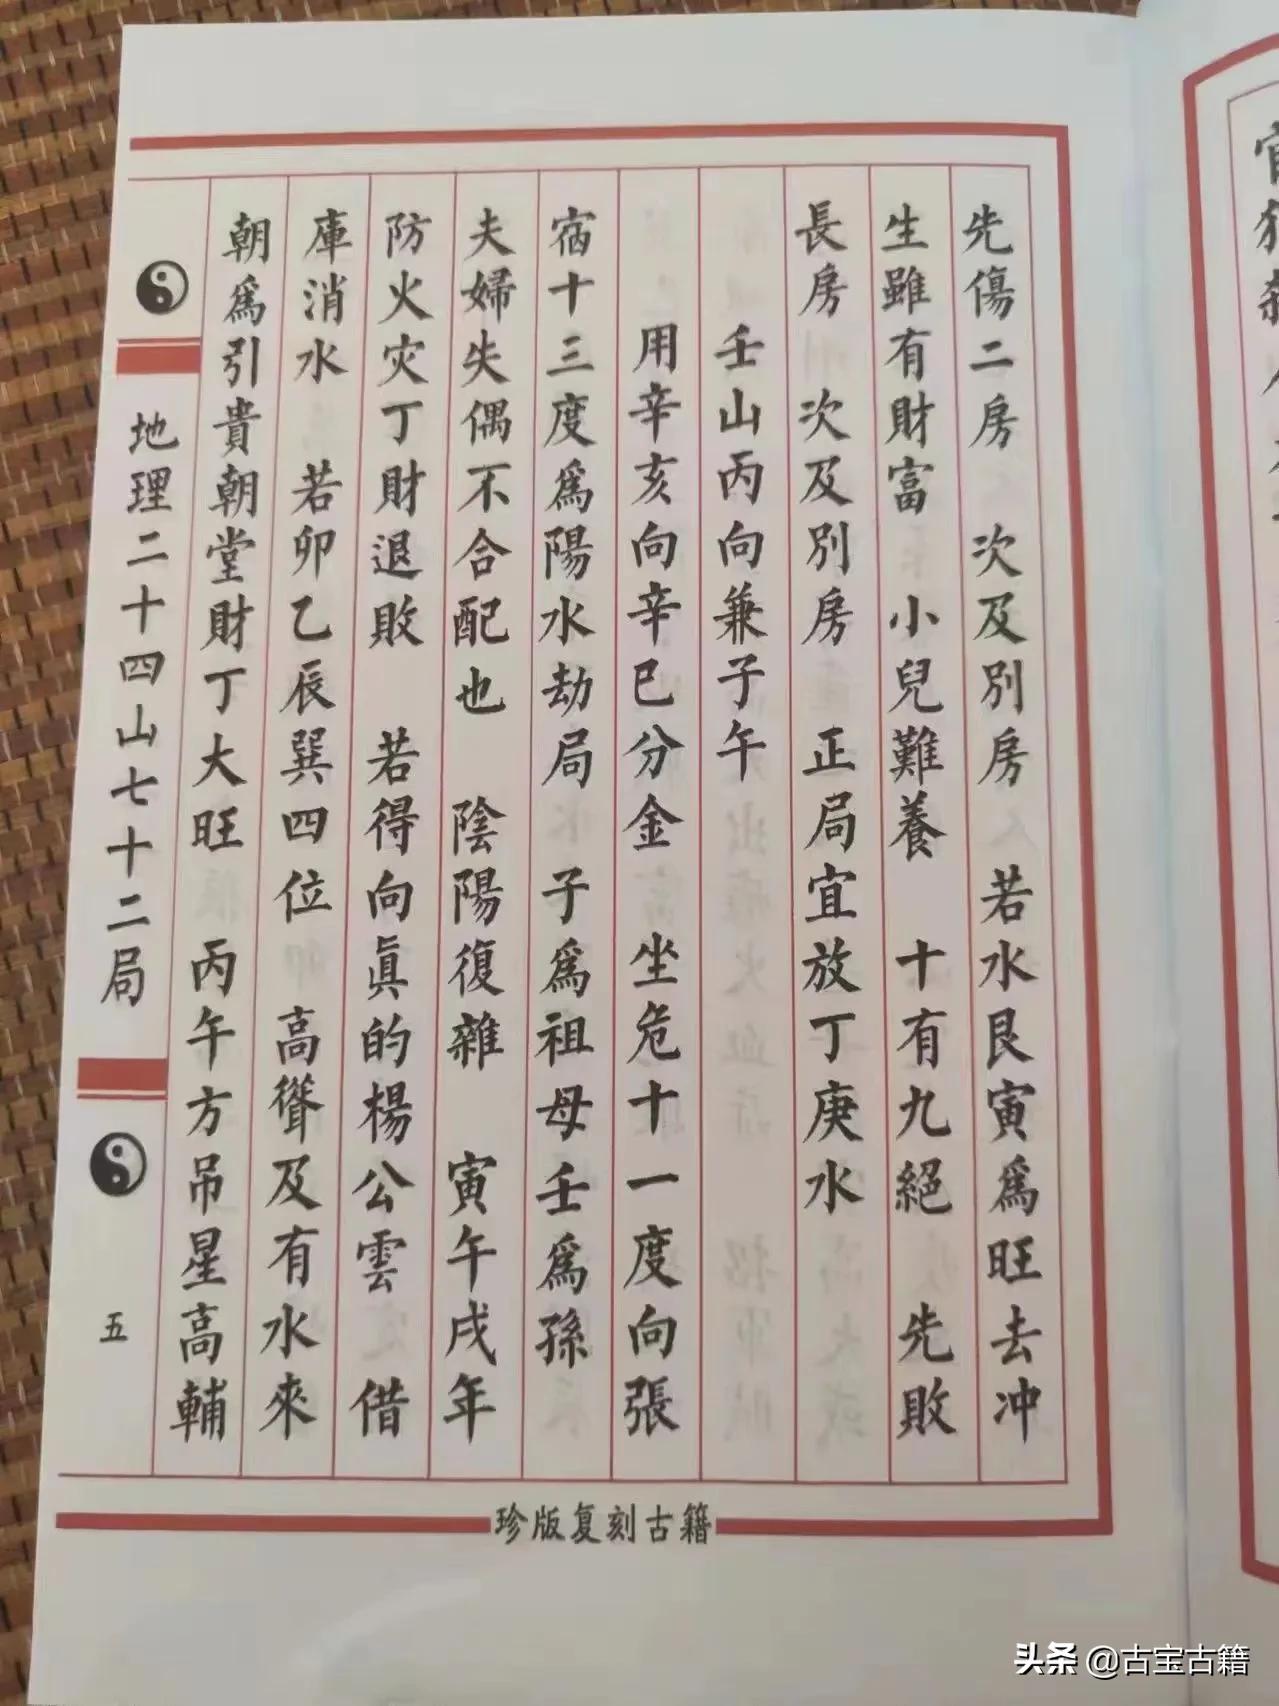 先傷二房　次及別房　若水艮寅爲旺去冲
生雖有財富　小兒難養　十有九絕　先敗
長房　次及別房　正局宜放丁庚水
壬山丙向兼子午
用辛亥向辛巳分金　坐危十一度向張
宿十三度爲陽水劫局　子爲祖母壬爲孫
夫婦失偶不合配也　陰陽復雜　寅午戌年
防火灾丁財退敗　若得向眞的楊公雲　借
庫消水　若卯乙辰巽四位　高聳及有水來
朝爲引貴朝堂財丁大旺　丙午方吊星高輔
地理二十四山七十二局
五
珍版复刻古籍
头条 @古宝古籍